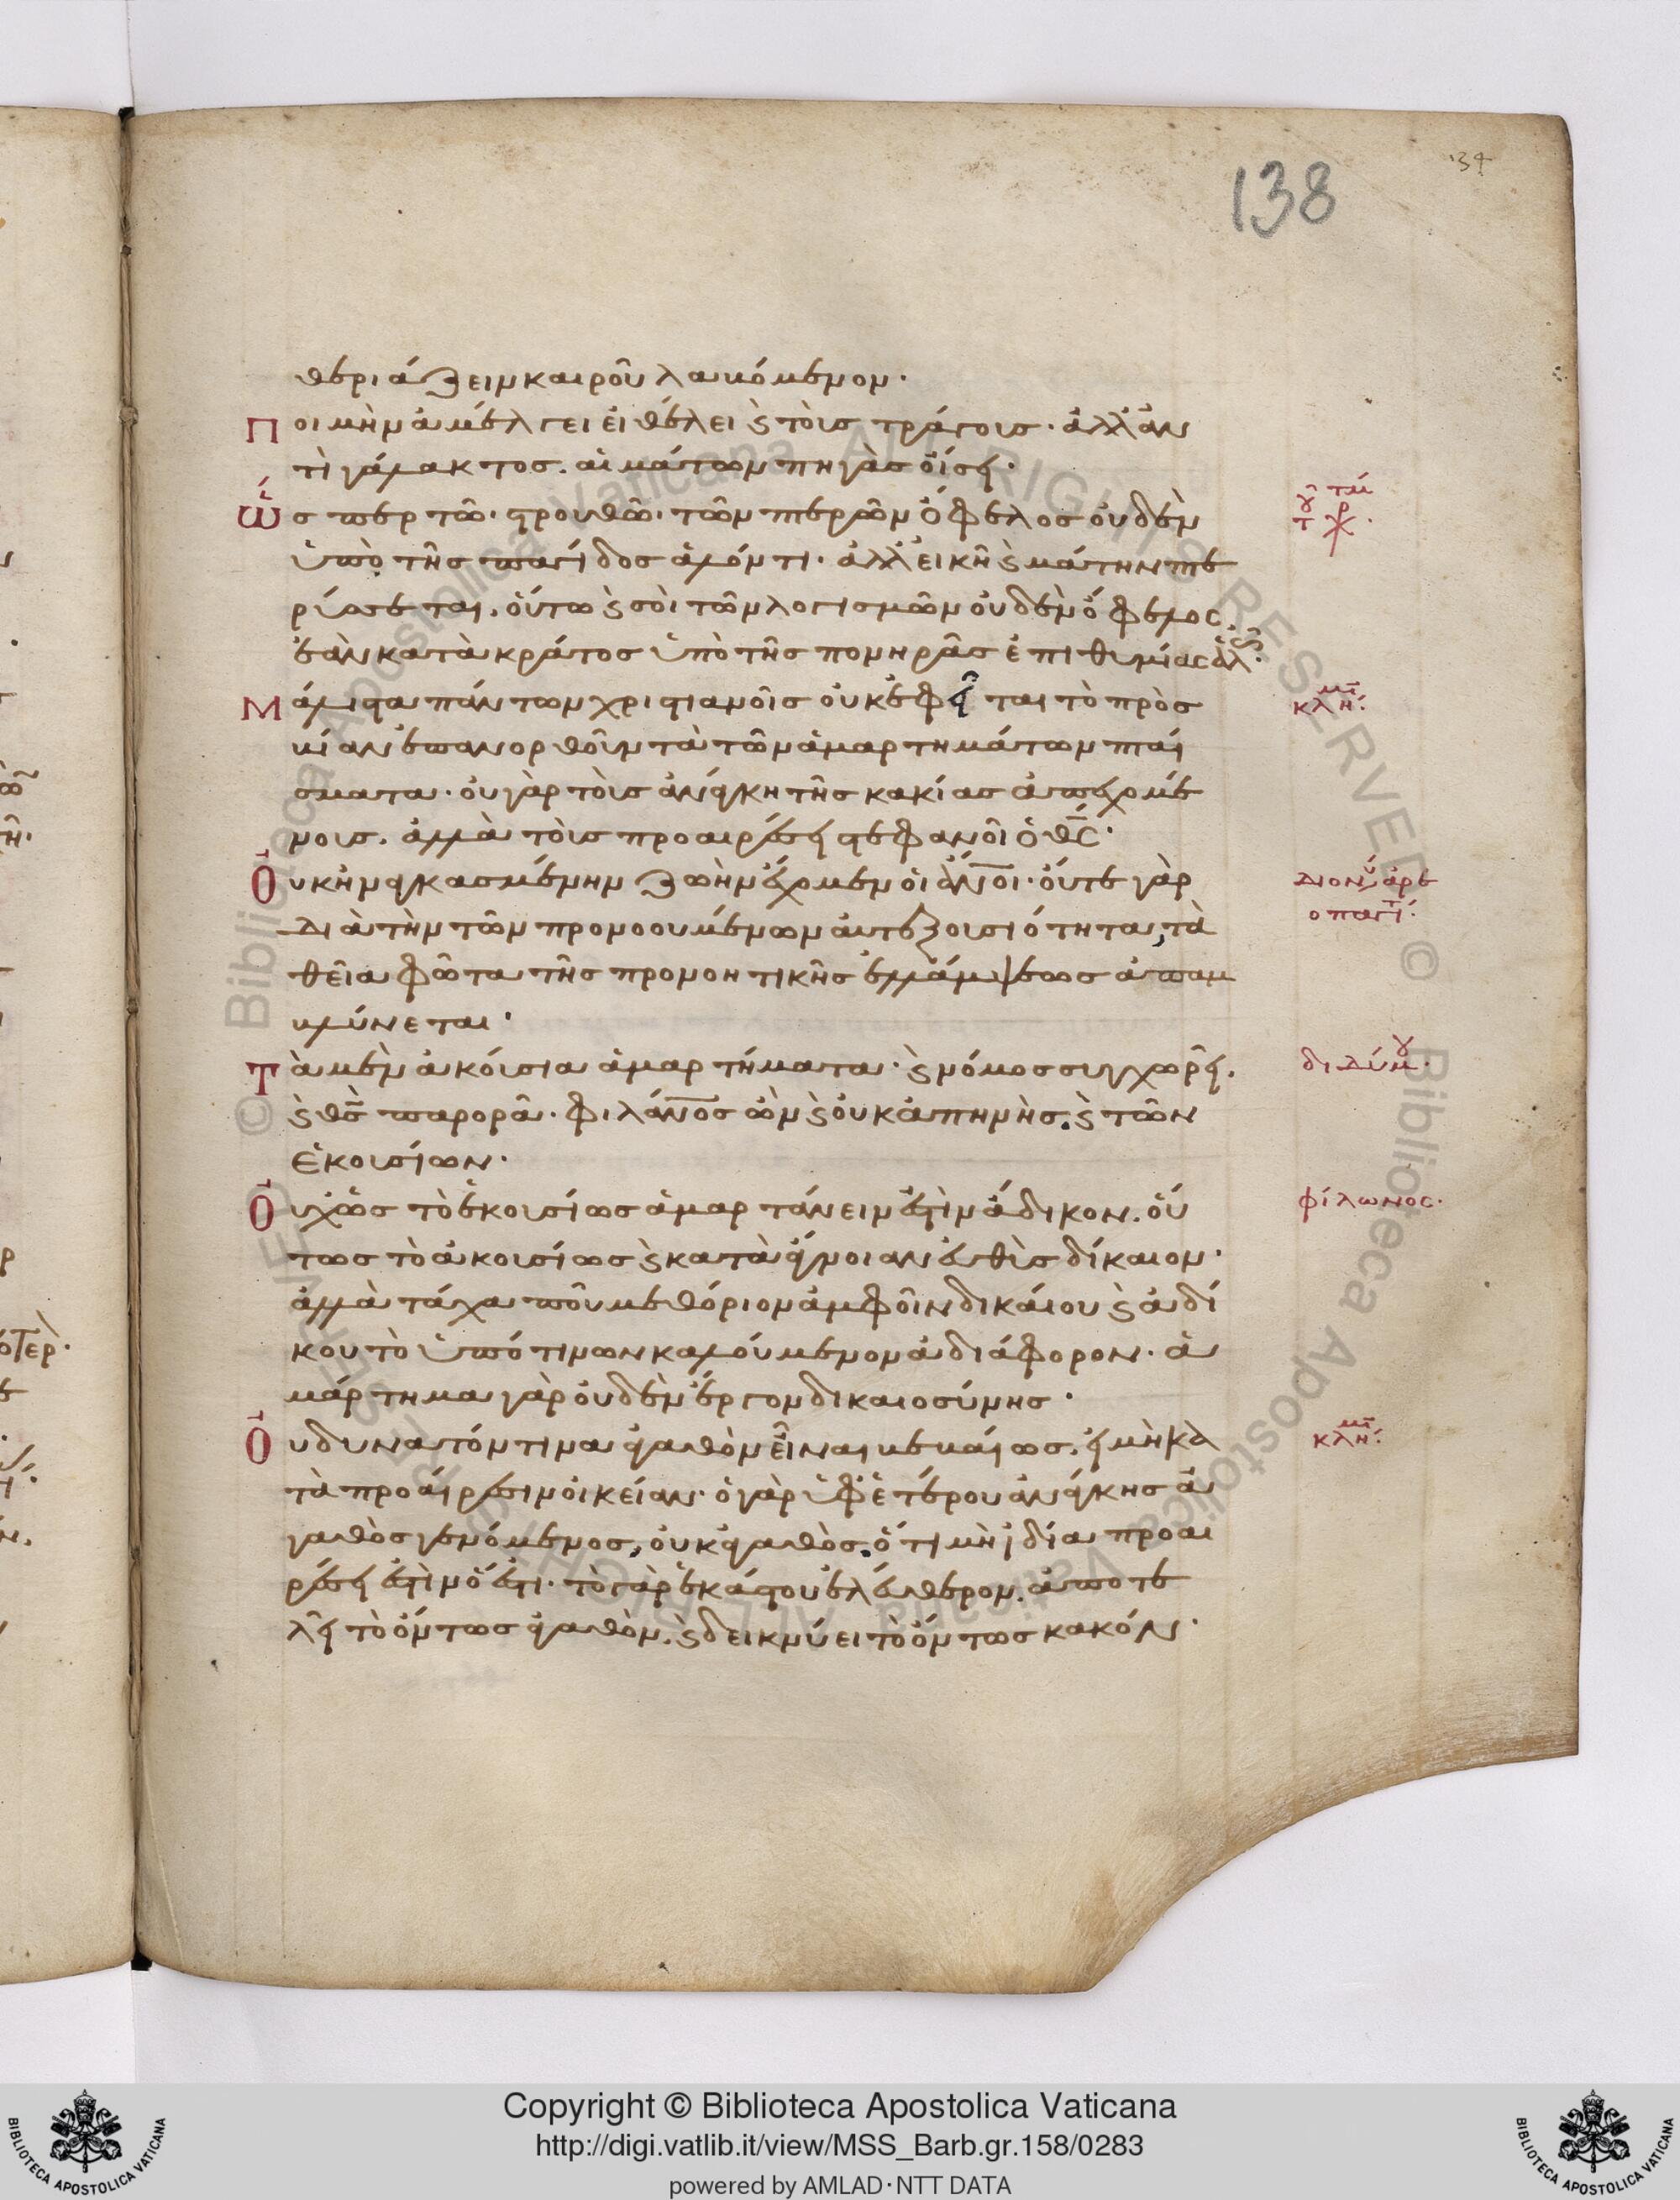 138
134
θεριάζειν καιροῦ λαχόμενον·
Ποιμὴν ἀμέλγει εἰ θέλει ϗ τοὺς τράγους· ἀλλ' ἀν
τὶ γάλακτος. αἱμάτων πηγὰς οἴσει·
Ὥσπερ τῶ στρουθῶ· τῶν πτερῶν ὄφελος οὐδὲν
ὑπὸ τῆς παγίδος ἁλόντι· ἀλλ' εἰκῆ ϗ μάτην πτε
ρύσσεται. οὕτω ϗ σοὶ τῶν λογισμῶν οὐδὲν ὄφελος.
ἐὰν κατὰ κράτος ὑπὸ τῆς πονηρᾶς ἐπιθυμίας ἁλῶς·
τοῦ αὐτοῦ χρ·
Μάλιστα πάντων χριστιανοῖς οὐκ ἐφεῖται τὸ πρὸς
βίαν ἐπανορθοῦν τὰ τῶν ἁμαρτημάτων πταί
σματα· οὐ γὰρ τοὺς ἀνάγκη τῆς κακίας ἀπεχομέ
νους. ἀλλὰ τοὺς προαιρέσει στεφανοῖ ὁ θς·
κλήμ·
Οὐκ ἠναγκασμένην ζωὴν ἔχομεν οἱ ἄνοι· οὔτε γὰρ
διὰ τὴν τῶν προνοουμένων αὐτεξουσιότητα, τὰ
θεῖα φῶτα τῆς προνοητικῆς ἐλλάμψεως ἀπαμ
βλύνεται·
διονυ ἀρε
οπαγί·
Τὰ μὲν ἀκούσια ἁμαρτήματα· ϗ νόμος συγχωρεῖ.
ϗ θς παρορᾶ· φιλάνος ὢν ϗ οὐκ ἀπηνής. ϗ τῶν
ἑκουσίων·
διδύμου·
Οὐχ ὡς τὸ ἑκουσίως ἁμαρτάνειν ἐστὶν ἄδικον. οὕ
τως τὸ ἀκουσίως ϗ κατὰ ἄγνοιαν εὐθὺς δίκαιον·
ἀλλὰ τάχα που μεθόριον ἀμφοῖν δικαίου ϗ ἀδί
κου τὸ ὑπό τινων καλούμενον ἀδιάφορον· ἁ
μάρτημα γὰρ οὐδὲν ἔργον δικαιοσύνης·
φίλωνος·
Οὐ δυνατόν τινα ἀγαθὸν εἶναι βεβαίως. εἰ μὴ κα
τὰ προαίρεσιν οἰκείαν· ὁ γὰρ ὑφ' ἑτέρου ἀνάγκης ἀ
γαθὸς γενόμενος, οὐκ ἀγαθός. ὅτι μὴ ἰδία προαι
ρέσει ἐστὶν ὅ ἐστι· τὸ γὰρ ἑκάστου ἐλεύθερον. ἀποτε
λεῖ τὸ ὄντως ἀγαθὸν. ϗ δεικνύει τὸ ὄντως κακόν·
κλήμ·
Copyright © Biblioteca Apostolica Vaticana
http://digi.vatlib.it/view/MSS_Barb.gr.158/0283
powered by AMLAD·NTT DATA
BIBLIOTECA APOSTOLICA VATICANA
BIBLIOTECA APOSTOLICA VATICANA